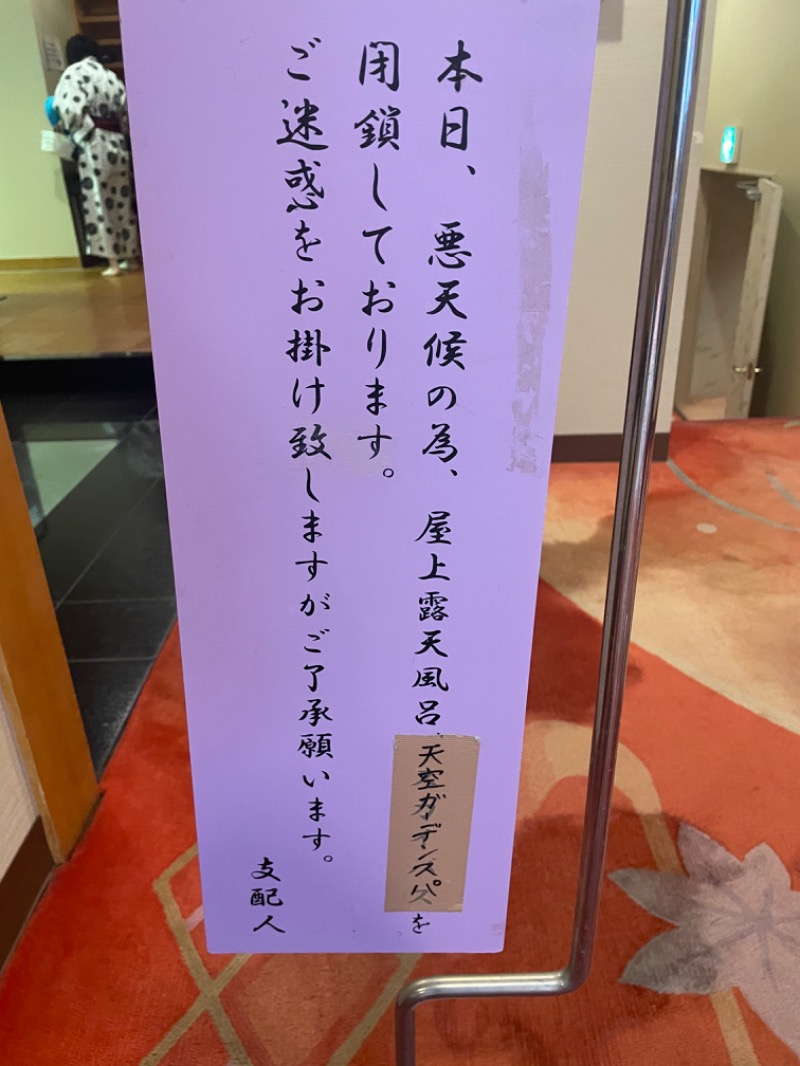 本日、悪天候の為、屋上露天風呂、天空ガーデンスパを
閉鎖しております。
ご迷惑をお掛け致しますがご了承願います。
支配人